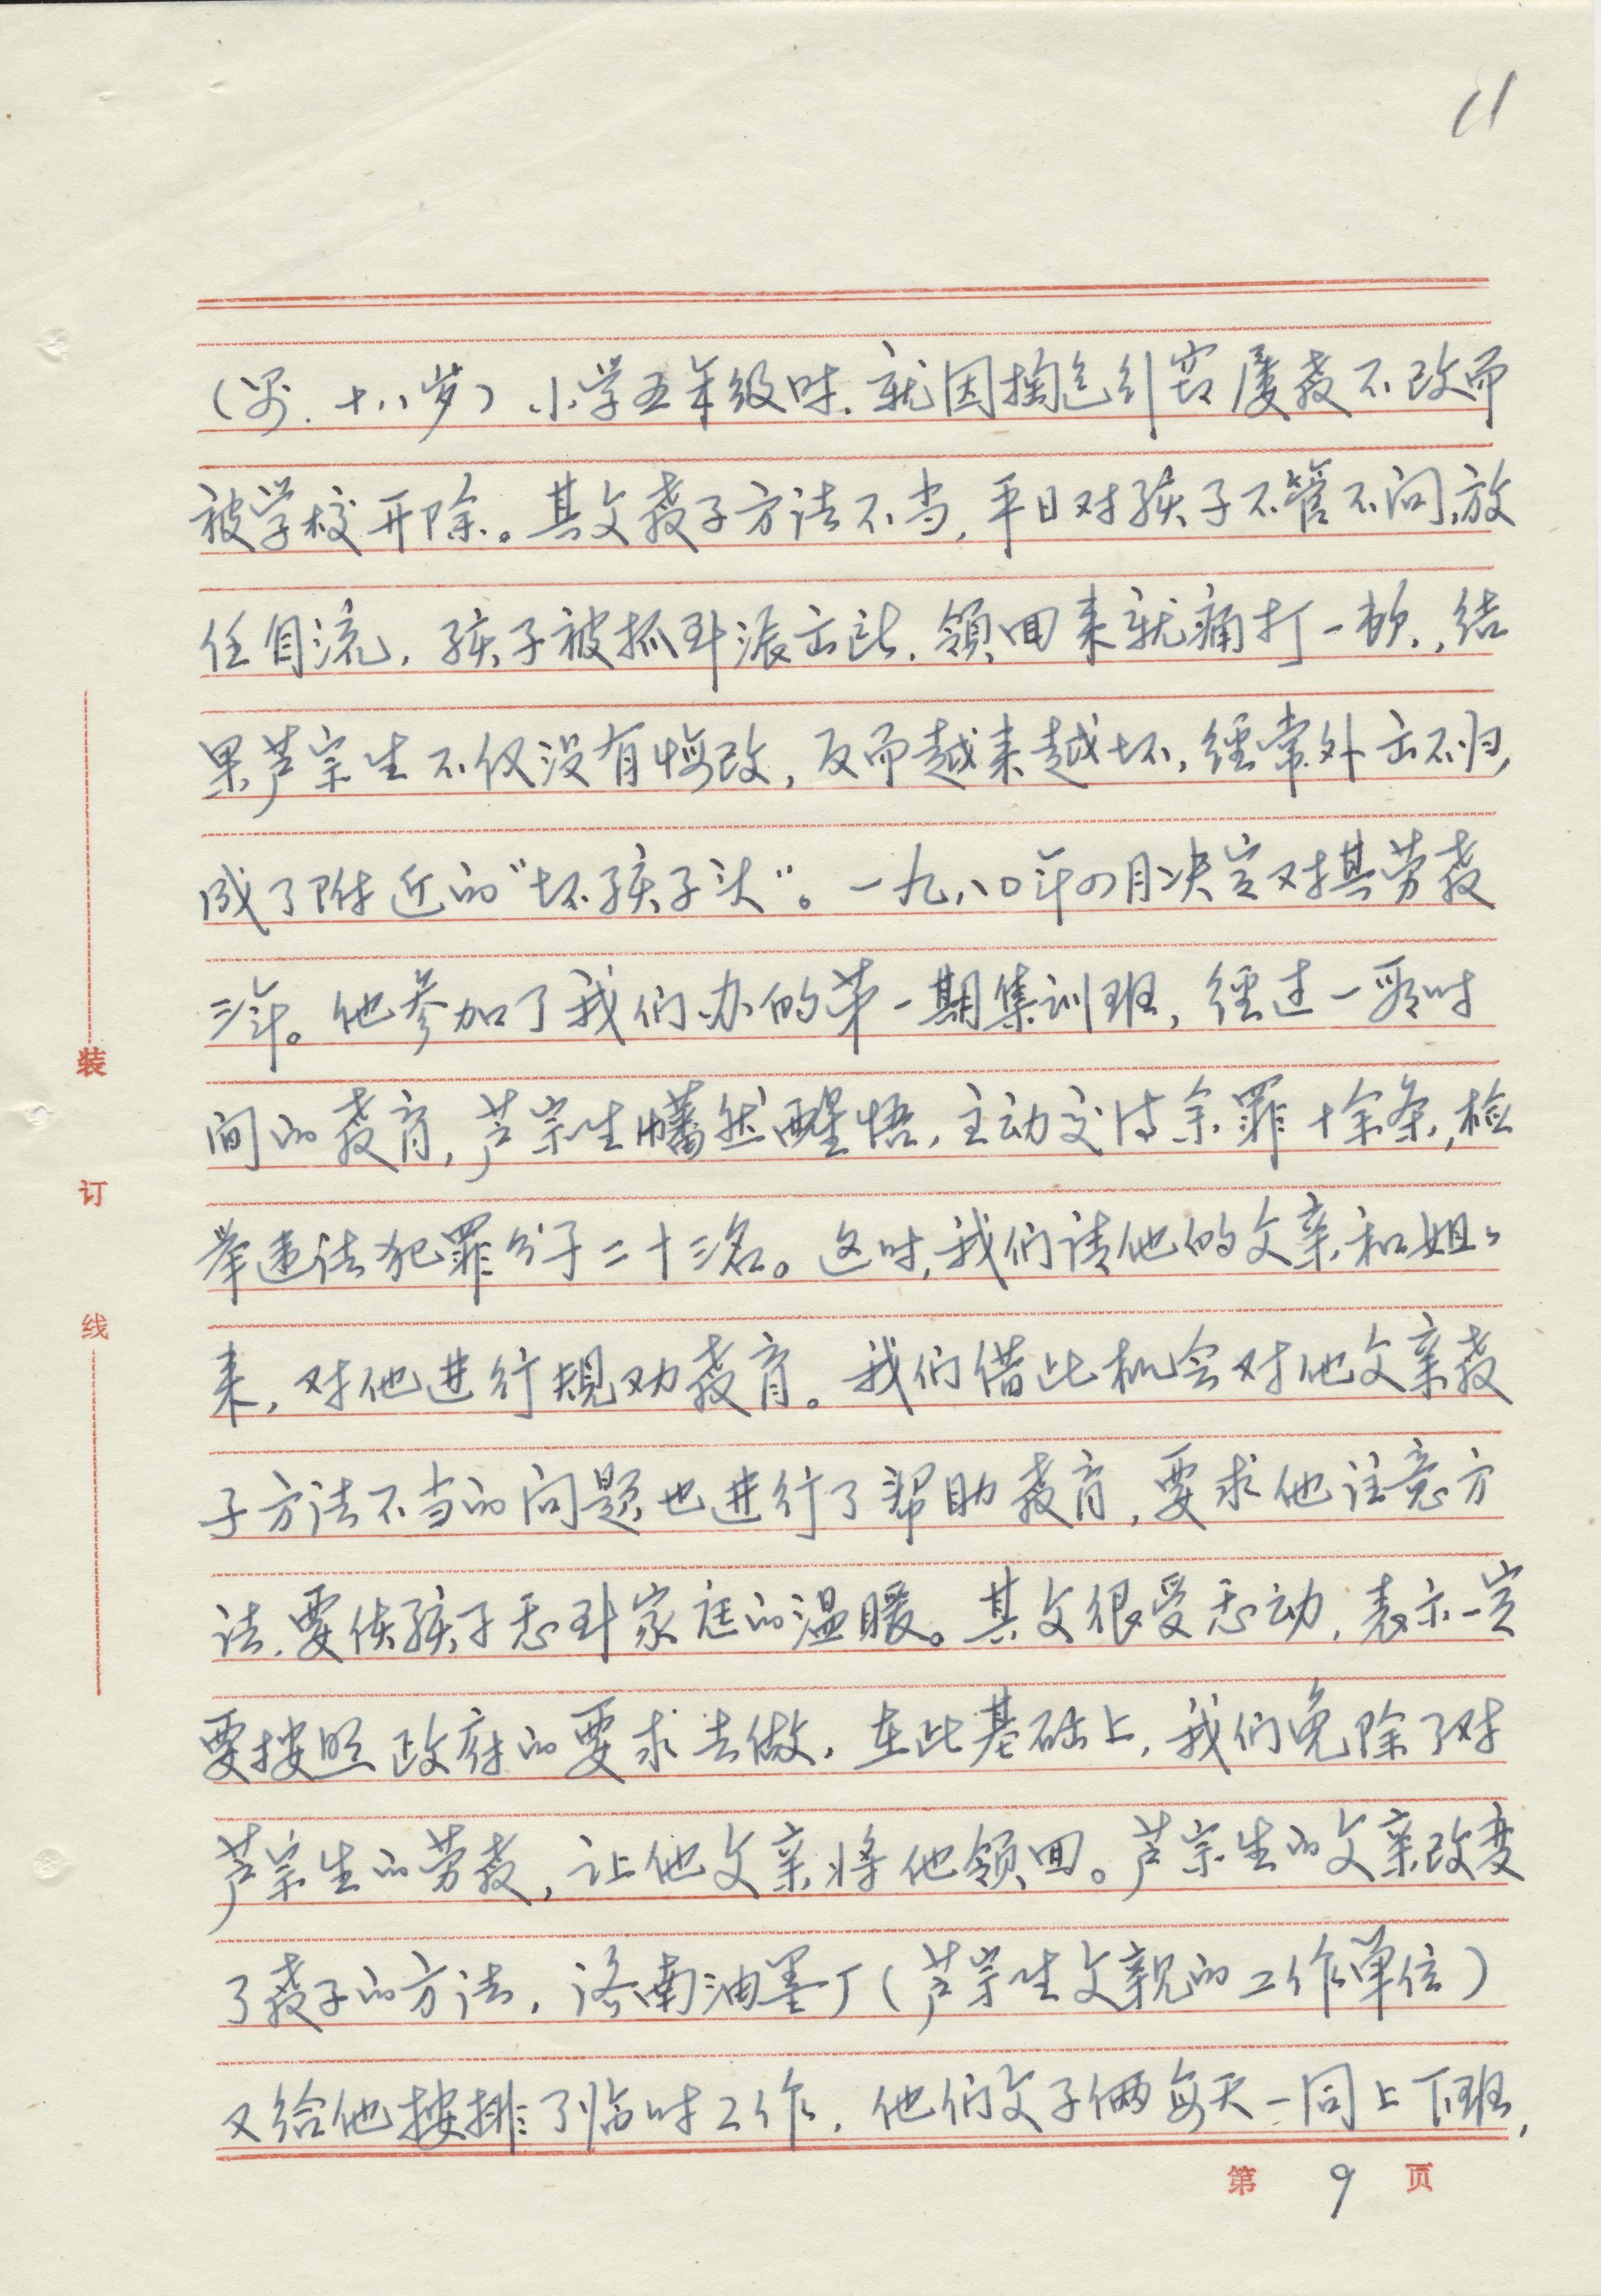 11
（男．十八岁）小学五年级时．就因掏包引窃屡教不改而
被学校开除。其父教子方法不当，平日对孩子不管不问，放
任自流，孩子被抓到派出所．领回来就痛打一顿，结
果芦宗生不仅没有悔改，反而越来越坏，经常外出不归，
成了附近的“坏孩子头”。一九八〇年四月决定对其劳教
三年。他参加了我们办的第一期集训班，经过一段时
间的教育，芦宗生幡然醒悟，主动交待余罪十余条，检
举违法犯罪分子二十三名。这时，我们请他的父亲和姐々
来，对他进行规劝教育。我们借此机会对他父亲教
子方法不当的问题也进行了帮助教育，要求他注意方
法，要使孩子感到家庭的温暖。其父很受感动，表示一定
要按照政府的要求去做，在此基础上，我们免除了对
芦宗生的劳教，让他父亲将他领回。芦宗生的父亲改变
了教子的方法，济南油墨厂（芦宗生父親的工作单位）
又给他按排了临时工作．他们父子俩每天一同上下班，
装
订
线
第 9 页